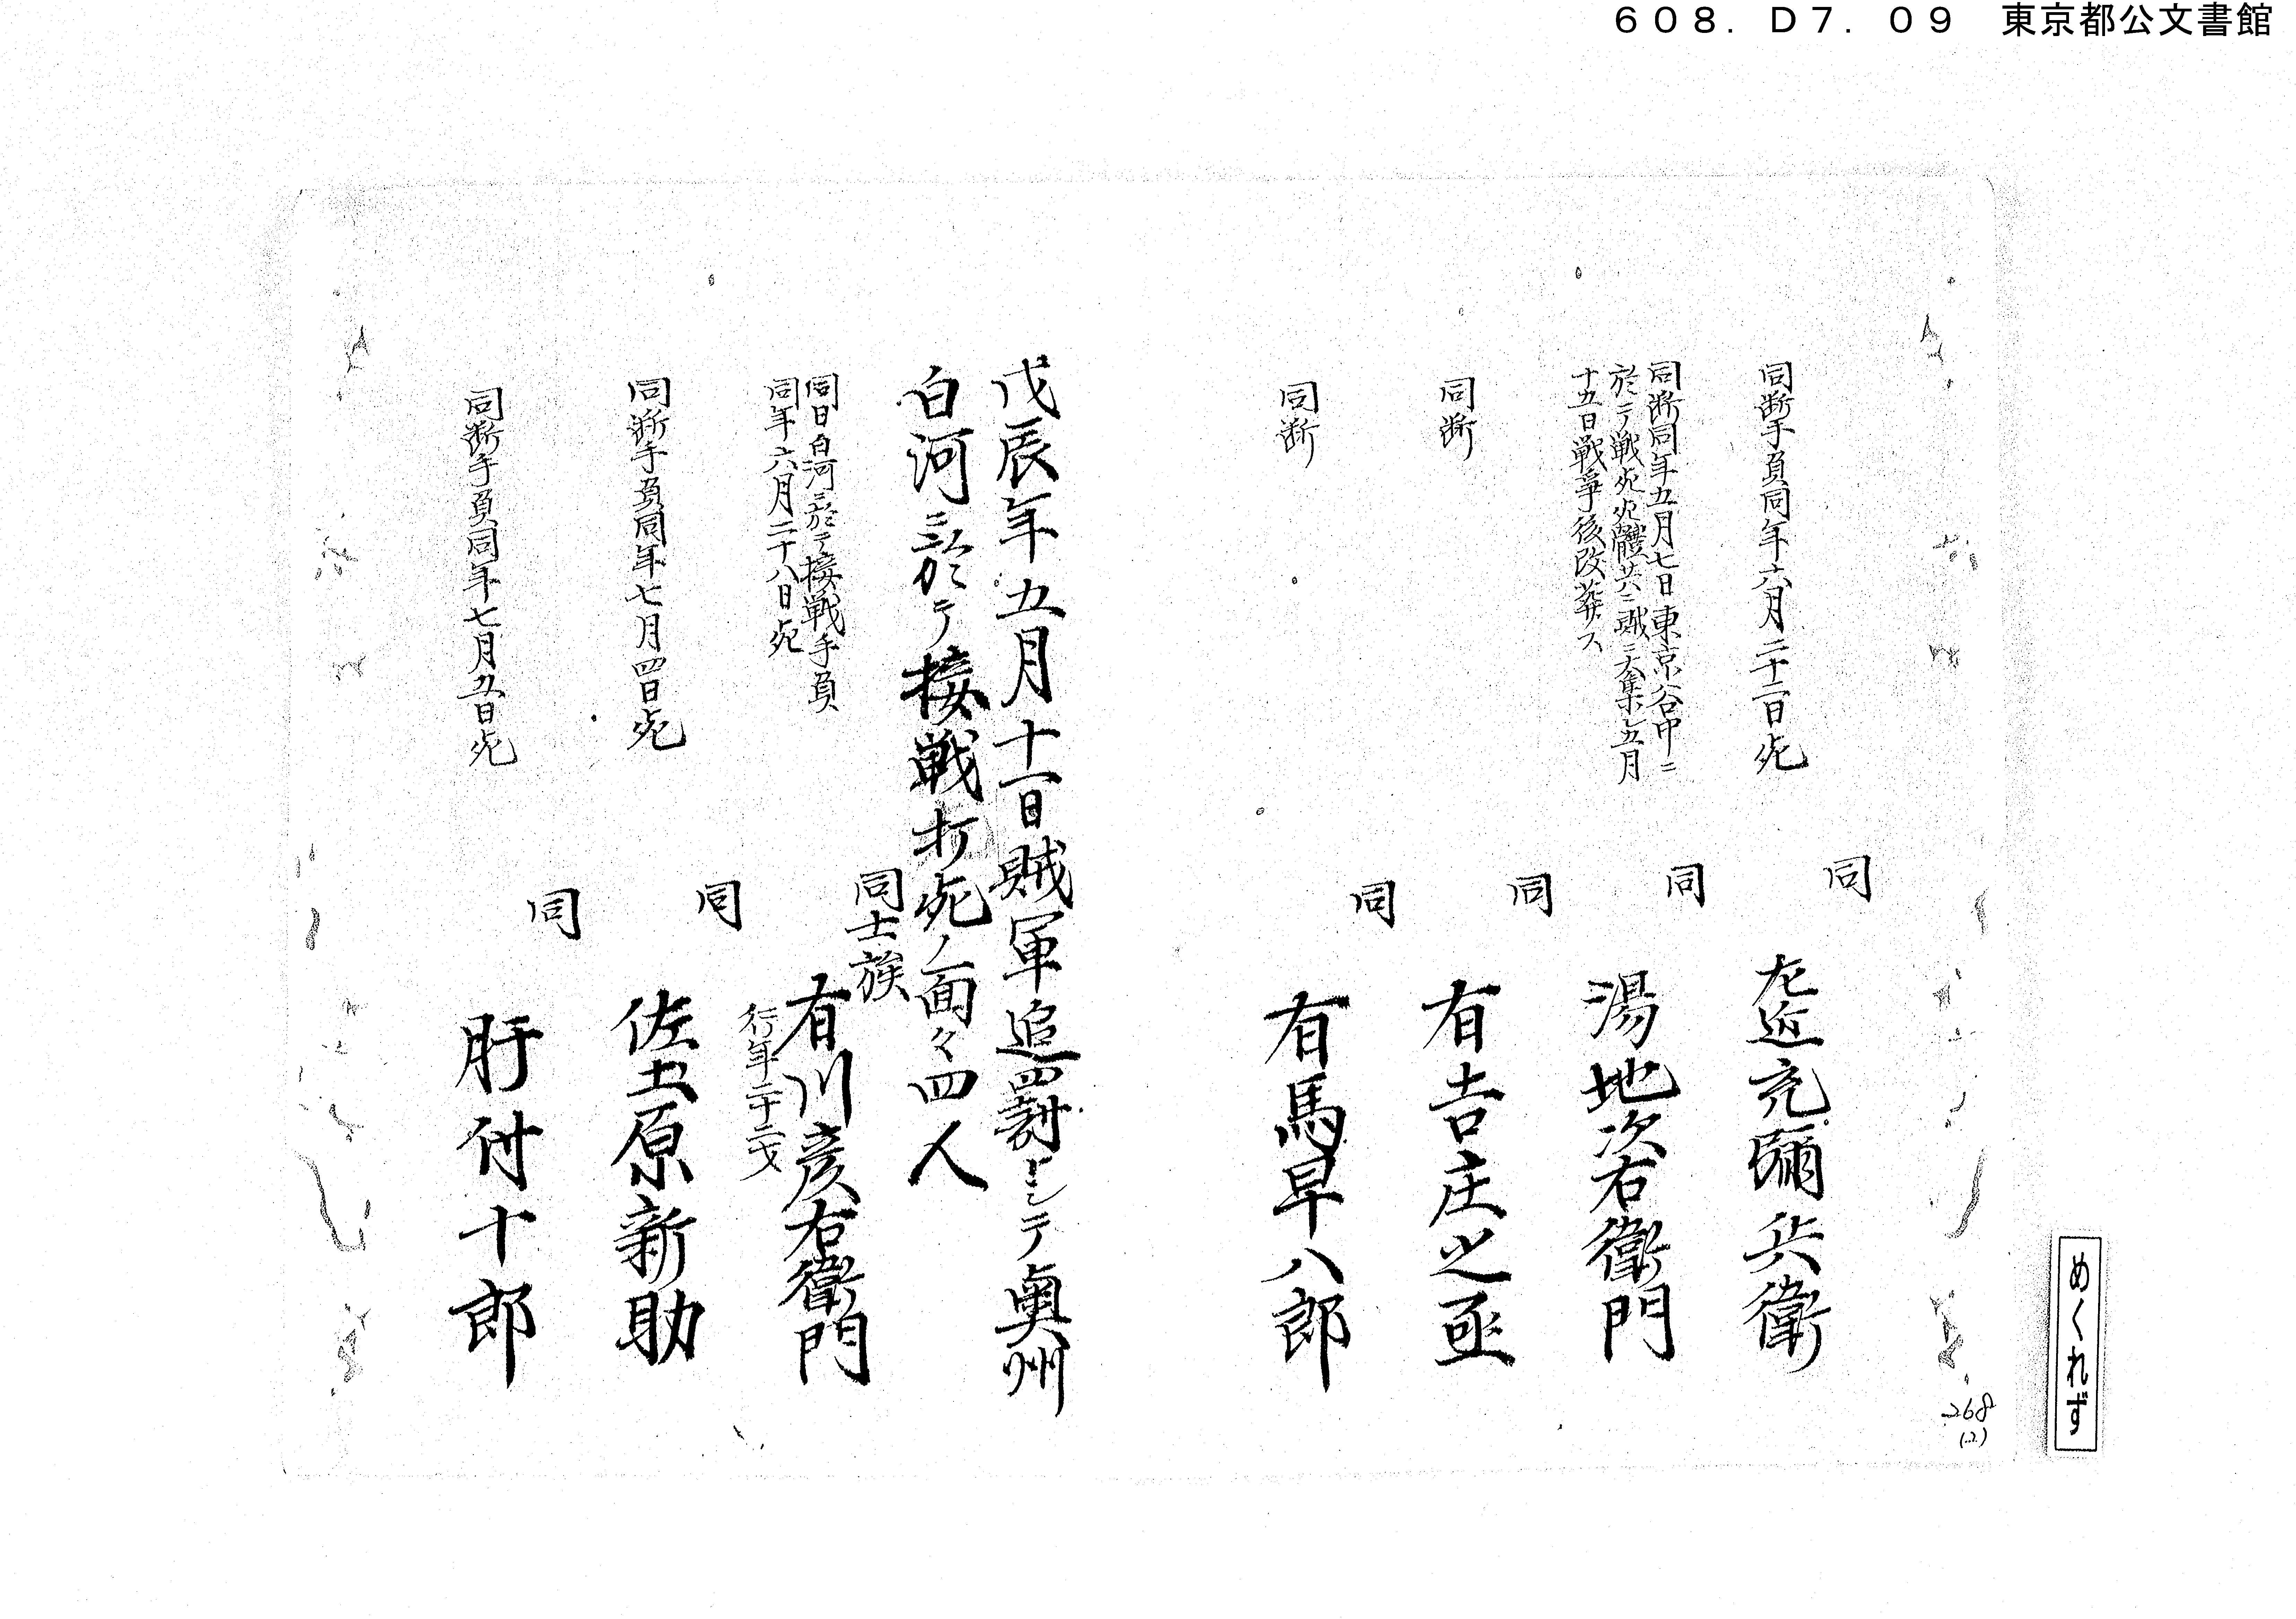 608. D7. 09 東京都公文書館
同断手負同年六月二十二日死
同
左近充彌兵衛
同断同年五月七日東京谷中ニ
於テ戦死死體共ニ賊ニ
五月
十五日戦爭後改葬ス
同
湯地次右衛門
同断
同
有吉庄之亟
同断
同
有馬早八郎
戊辰年五月十一日賊軍追罰トシテ奥州
白河ニ於テ接戦打死ノ面々四人
同日白河ニ於テ接戦手負
同年六月二十八日死
同士族
有川彦右衛門
行年二十二才
同断手負同年七月四日死
同
佐土原新助
同断手負同年七月五日死
同
肝付十郎
めくれず
268
(2)